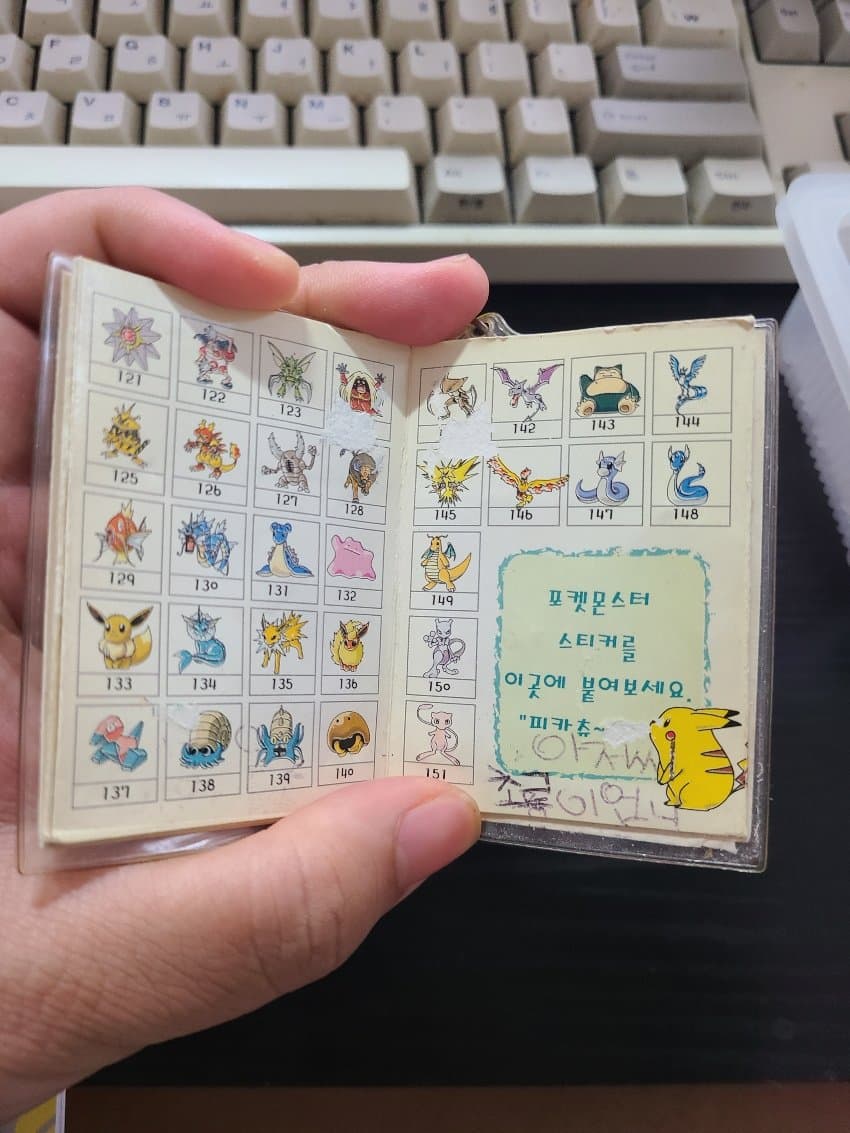 F
G
H
J
K
L
C
V
B
N
M
121 122 123
125 126 127 128
129 130 131 132
133 134 135 136
137 138 139 140
142 143 144
145 146 147 148
149
150
151
포켓몬스터
스티커를
이곳에 붙여보세요.
"피카츄~